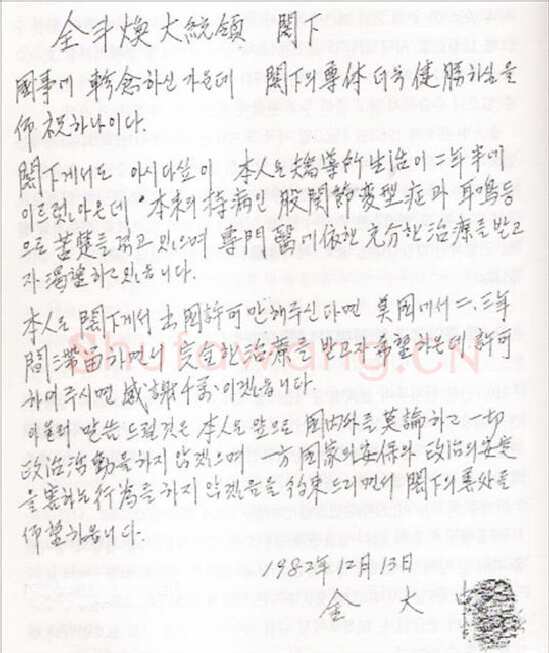 全斗煥大統領 閣下
國事에 軫念하신 가운데 閣下의 尊体 더욱 健勝하심을
仰祝하나이다.
閣下께서도 아시다싶이 本人은 矯導所生活이 二年半에
이르렀아온데 本來의 持病인 股關節変型症과 耳鳴等
으로 苦楚를 겪고 있으며 専門醫에 依한 充分한 治療를 받고
자 渴望하고 있읍니다.
本人은 閣下께서 出國許可만 해주신다면 美國에서 二、三年
間 滯留하면서 完全한 治療를 받고자 希望하온데 許可
하여 주시면 感謝千萬이겠읍니다.
아울러 말씀 드릴 것은 本人은 앞으로 國內外를 莫論하고 一切
政治活動을 하지 않겠으며 一方 國家의 安保와 政治의 安定
을 害하는 行為를 하지 않겠음을 約束드리면서 閣下의 善処를
仰望하옵니다.
1982年 12月 13日
金 大 中
Shufawang.CN